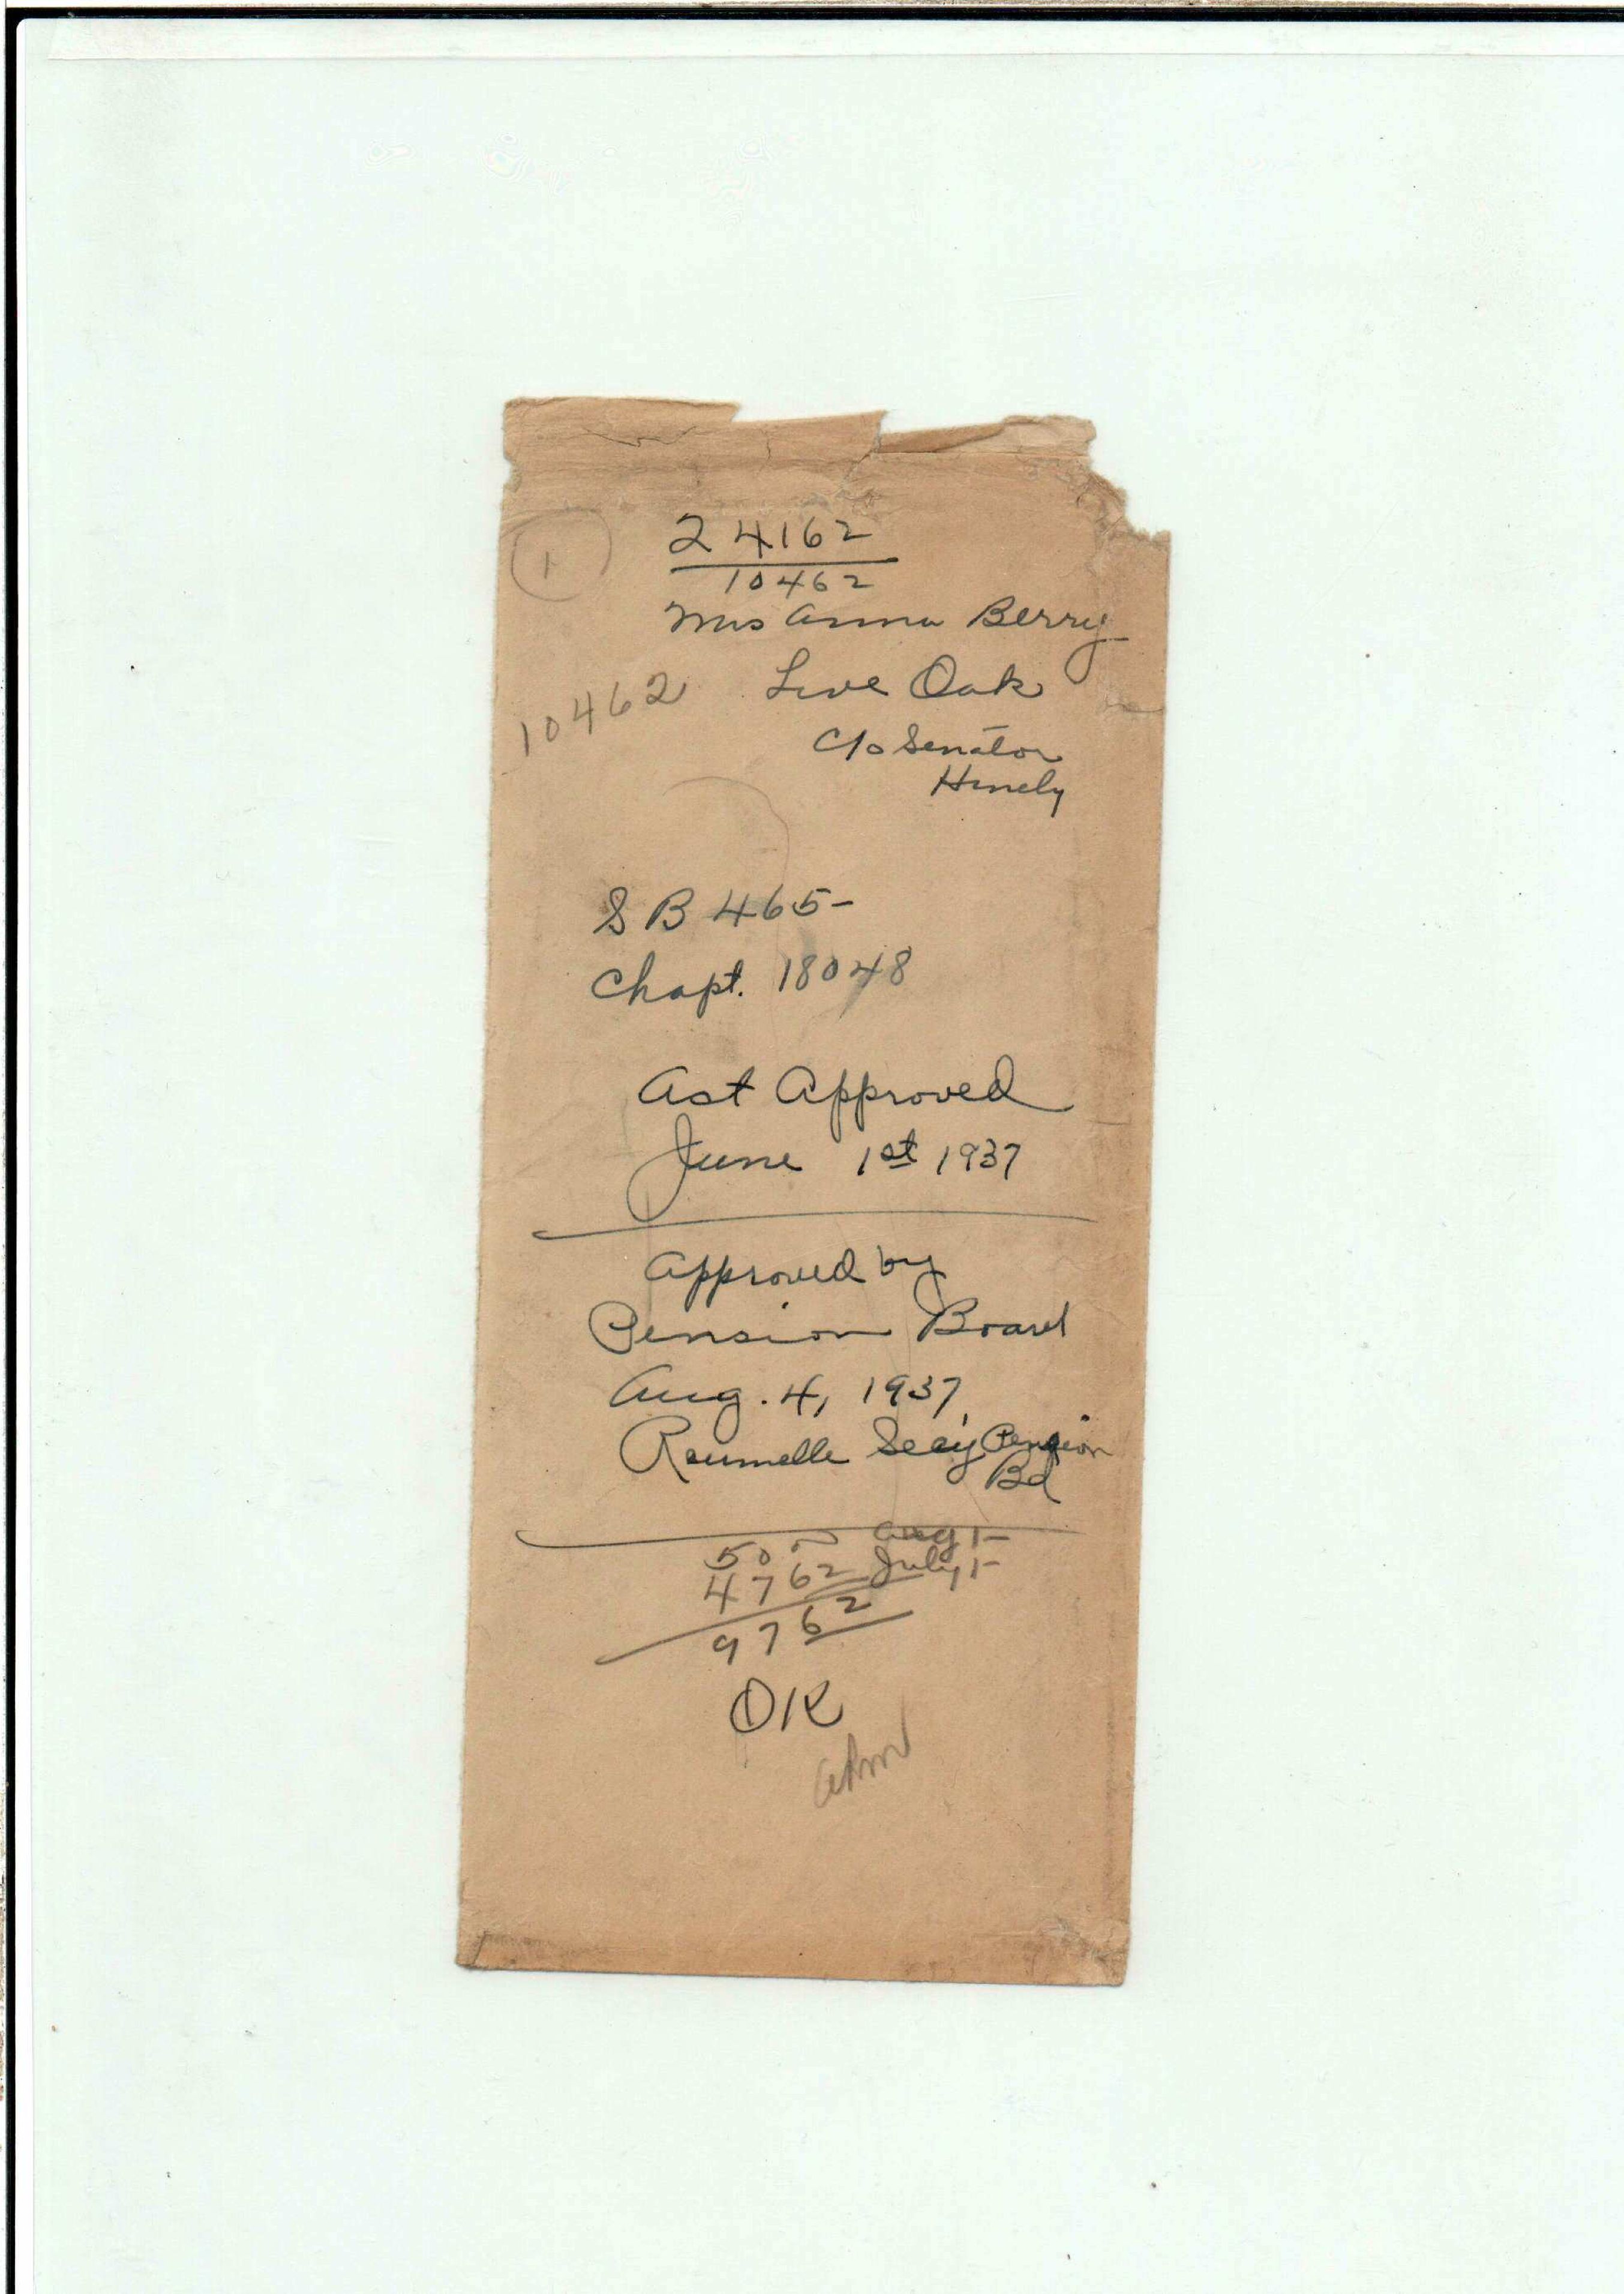 1
24162
10462
Mrs Anna Berry
10462 Live Oak
c/o Senator
Hinely
S B 465-
Chapt. 18048
Act Approved
June 1st 1937
Approved by
Pension Board
Aug. 4, 1937
Secy Pension
Bd
50 Aug 1-
4762 July 1-
9762
OK